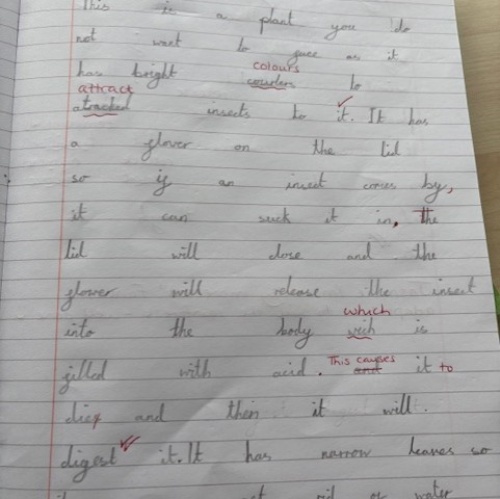 This is a plant you do
not want to as it
colours
has bright to
attract
atracked insects to it. It has
a flower on the lid
so if an insect comes by,
it can suck it in, the
lid will close and the
flower will release the insect
which
into the body wich is
This causes
filled with acid. and it to
die and then it will.
digest it. It has narrow leaves so
water